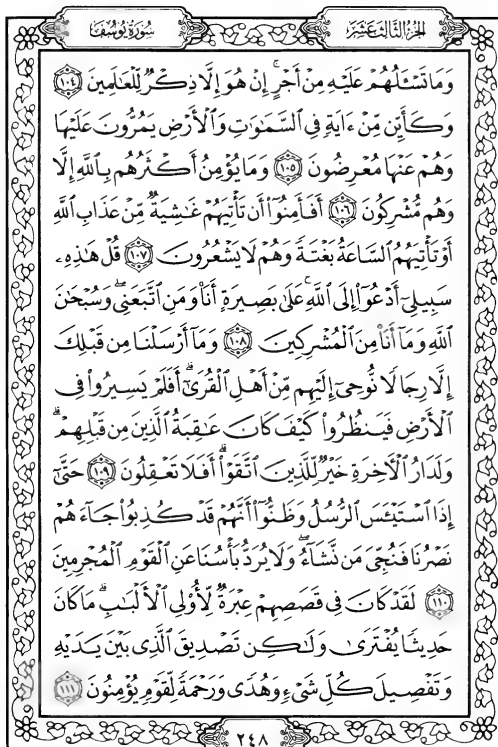 الجزء الثالث عشر
سورة يوسف
وَمَا تَسْـَٔلُهُمْ عَلَيْهِ مِنْ أَجْرٍ ۚ إِنْ هُوَ إِلَّا ذِكْرٌ لِّلْعَٰلَمِينَ ١٠٤
وَكَأَيِّن مِّنْ ءَايَةٍ فِى ٱلسَّمَٰوَٰتِ وَٱلْأَرْضِ يَمُرُّونَ عَلَيْهَا
وَهُمْ عَنْهَا مُعْرِضُونَ ١٠٥ وَمَا يُؤْمِنُ أَكْثَرُهُم بِٱللَّهِ إِلَّا
وَهُم مُّشْرِكُونَ ١٠٦ أَفَأَمِنُوٓا۟ أَن تَأْتِيَهُمْ غَٰشِيَةٌ مِّنْ عَذَابِ ٱللَّهِ
أَوْ تَأْتِيَهُمُ ٱلسَّاعَةُ بَغْتَةً وَهُمْ لَا يَشْعُرُونَ ١٠٧ قُلْ هَٰذِهِۦ
سَبِيلِىٓ أَدْعُوٓا۟ إِلَى ٱللَّهِ ۚ عَلَىٰ بَصِيرَةٍ أَنَا۠ وَمَنِ ٱتَّبَعَنِى ۖ وَسُبْحَٰنَ
ٱللَّهِ وَمَآ أَنَا۠ مِنَ ٱلْمُشْرِكِينَ ١٠٨ وَمَآ أَرْسَلْنَا مِن قَبْلِكَ
إِلَّا رِجَالًا نُّوحِىٓ إِلَيْهِم مِّنْ أَهْلِ ٱلْقُرَىٰٓ ۗ أَفَلَمْ يَسِيرُوا۟ فِى
ٱلْأَرْضِ فَيَنظُرُوا۟ كَيْفَ كَانَ عَٰقِبَةُ ٱلَّذِينَ مِن قَبْلِهِمْ ۗ
وَلَدَارُ ٱلْءَاخِرَةِ خَيْرٌ لِّلَّذِينَ ٱتَّقَوْا۟ ۗ أَفَلَا تَعْقِلُونَ ١٠٩ حَتَّىٰٓ
إِذَا ٱسْتَيْـَٔسَ ٱلرُّسُلُ وَظَنُّوٓا۟ أَنَّهُمْ قَدْ كُذِبُوا۟ جَآءَهُمْ
نَصْرُنَا فَنُجِّىَ مَن نَّشَآءُ ۖ وَلَا يُرَدُّ بَأْسُنَا عَنِ ٱلْقَوْمِ ٱلْمُجْرِمِينَ
١١٠ لَقَدْ كَانَ فِى قَصَصِهِمْ عِبْرَةٌ لِّأُو۟لِى ٱلْأَلْبَٰبِ ۗ مَا كَانَ
حَدِيثًا يُفْتَرَىٰ وَلَٰكِن تَصْدِيقَ ٱلَّذِى بَيْنَ يَدَيْهِ
وَتَفْصِيلَ كُلِّ شَىْءٍ وَهُدًى وَرَحْمَةً لِّقَوْمٍ يُؤْمِنُونَ ١١١
٢٤٨